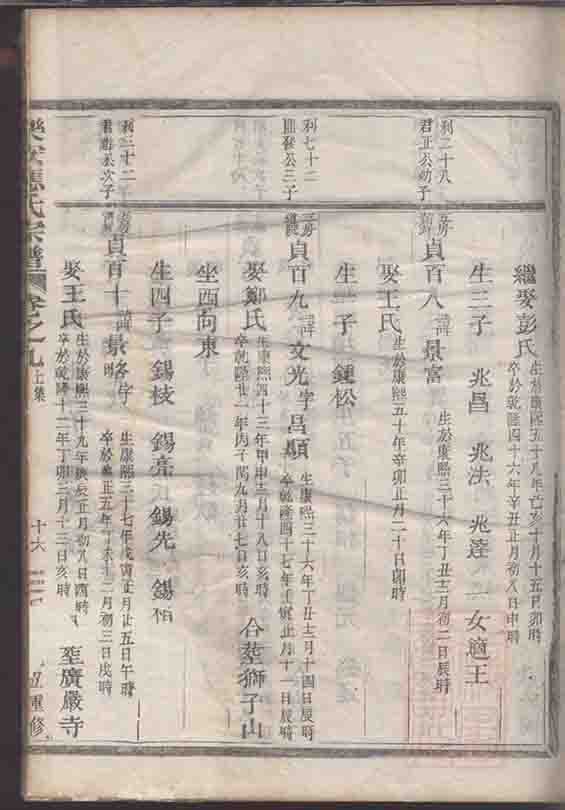 繼娶彭氏 生於康熙五十八年己亥十月十五日卯時 卒於乾隆四十六年辛丑正月初八日申時
生三子 兆昌 兆洪 兆達 一女適王
利二十八 君正公幼子
貞百八 諱景富 生於康熙三十六年丁丑十二月初二日辰時
娶王氏 生於康熙五十年辛卯正月二十日卯時
生一子 鍾松
利七十二 公三子
貞百九 諱文光 字昌順 生康熙三十六年丁丑十二月十四日辰時 卒乾隆四十七年壬寅正月十一日辰時
娶鄭氏 生康熙四十三年甲申十二月十八日亥時 卒乾隆廿一年丙子閏九月廿七日亥時 合塋獅子山
坐西向東
生四子 錫枝 錫亮 錫先 錫柏
利三十二 公次子
貞百十 諱景 字 生於康熙三十七年戊寅正月廿五日午時 卒於雍正五年丁未十二月初三日戌時
娶王氏 生於康熙三十九年庚辰正月初八日酉時 卒於乾隆十二年丁卯三月十三日亥時 塋廣嚴寺
樂安應氏宗譜 卷之九 上集 十六 重修